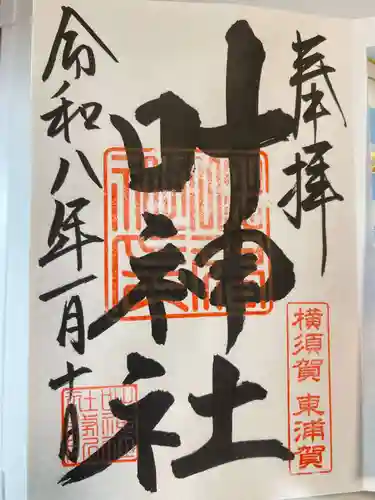 奉拝
叶神社
横須賀 東浦賀
令和八年一月十日